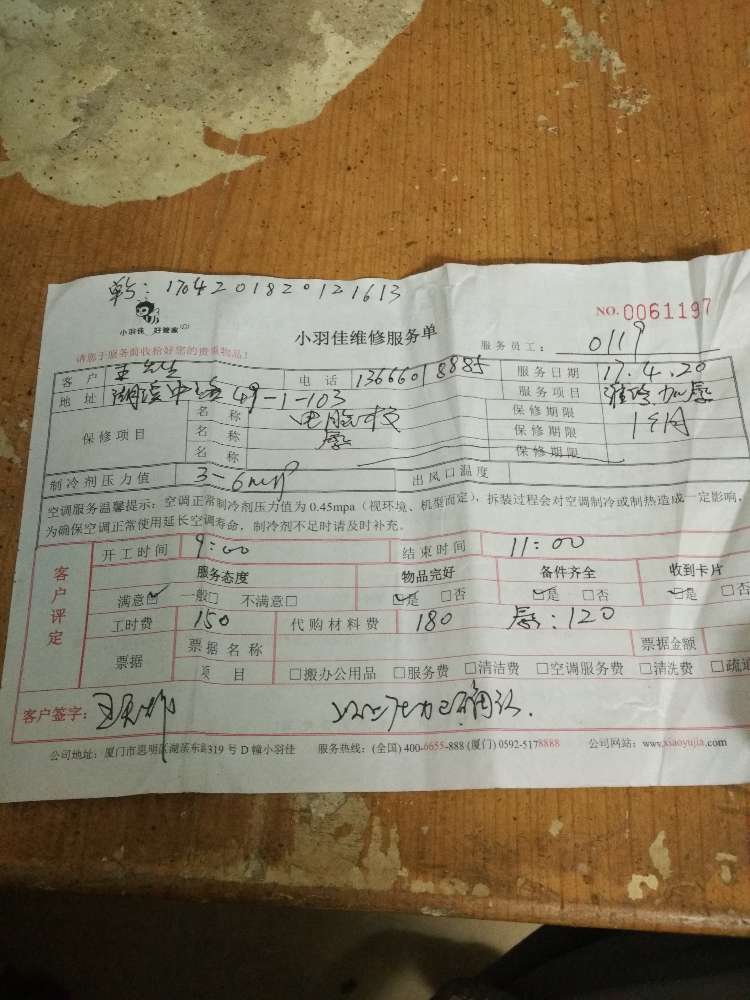 单号：1704201820121613
小羽佳 好管家
NO. 0061197
小羽佳维修服务单
服务员工： 0119
请您于服务前收拾好您的贵重物品！
客户 王先生 电话 13666018885 服务日期 17.4.20
地址 49-1-103 服务项目 加氨
保修项目 名称 电脑板 保修期限 1个月
名称 保修期限
名称 保修期限
制冷剂压力值 3-6mp 出风口温度
空调服务温馨提示：空调正常制冷剂压力值为 0.45mpa（视环境、机型而定），拆装过程会对空调制冷或制热造成一定影响，
为确保空调正常使用延长空调寿命，制冷剂不足时请及时补充。
客户评定
开工时间 9：00 结束时间 11：00
服务态度 物品完好 备件齐全 收到卡片
满意☑ 一般□ 不满意□ ☑是 □否 ☑是 □否 ☑是 □否
工时费 150 代购材料费 180 ：120
票据 票据名称 票据金额
项目 □搬办公用品 □服务费 □清洁费 □空调服务费 □清洗费 □疏通
客户签字：
公司地址：厦门市思明区湖滨东路319号D幢小羽佳 服务热线：(全国) 400-6655-888 (厦门) 0592-5178888 公司网站：www.xiaoyujia.com